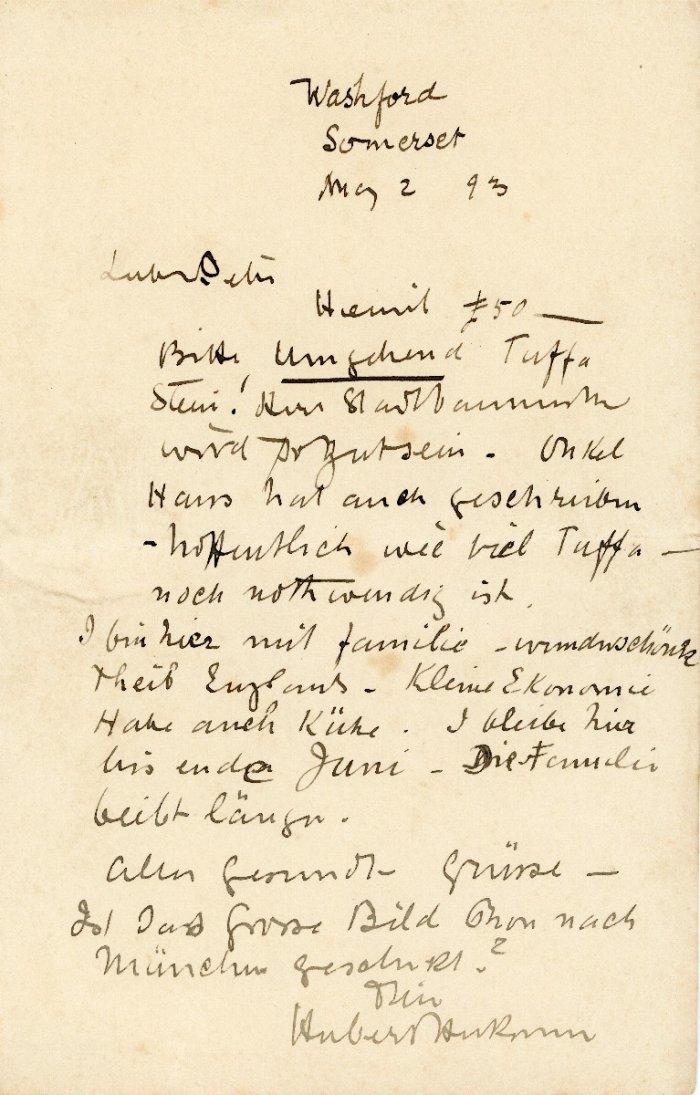 Washford
Somerset
May 2 93
Lieber Peter
Hiemit £50 —
Bitte Umgehend Tuffa
Stein! Herr Stadtbaumeister
wird so gut sein - Onkel
Hans hat auch geschrieben
- hoffentlich wie viel Tuffa —
noch nothwendig ist.
I bin hier mit familie - wunderschönste
Theil Englands - Kleine Ekonomie
Habe auch Kühe. I bleibe hier
bis ende Juni - Die Familie
beibt länger.
Alles gesund - Grüsse —
Ist Das Grosse Bild schon nach
München geschikt?
Dein
Hubert Herkomer